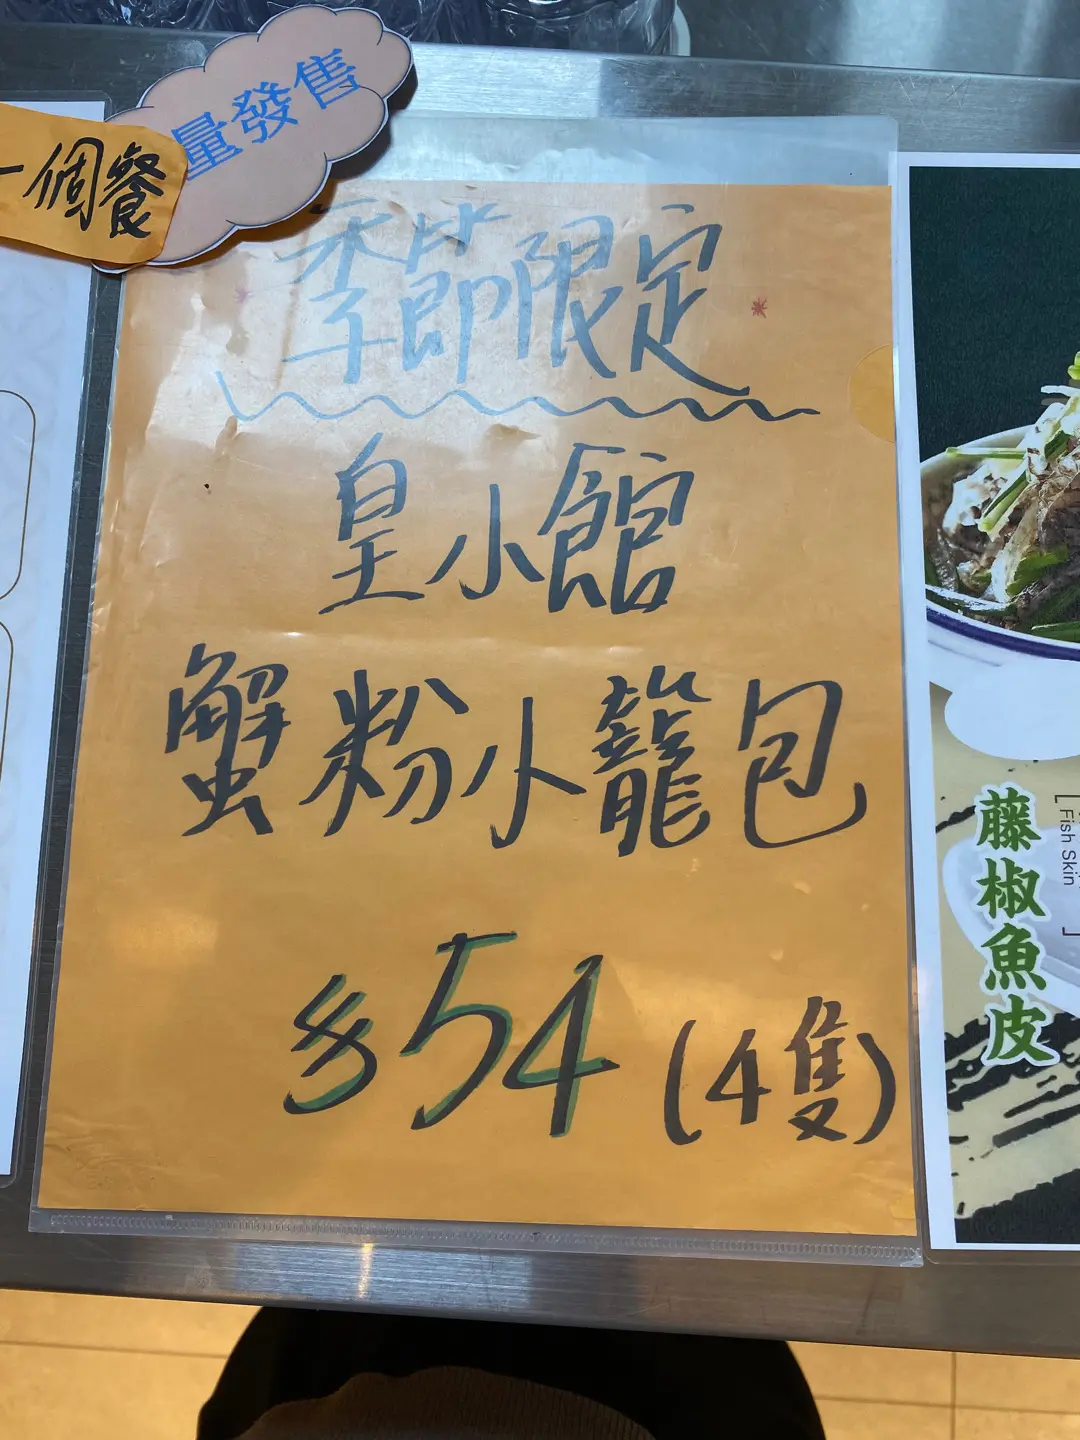 量發售
一個餐
季節限定
皇小館
蟹粉小籠包
$54 (4隻)
藤椒魚皮
[Fish Skin]